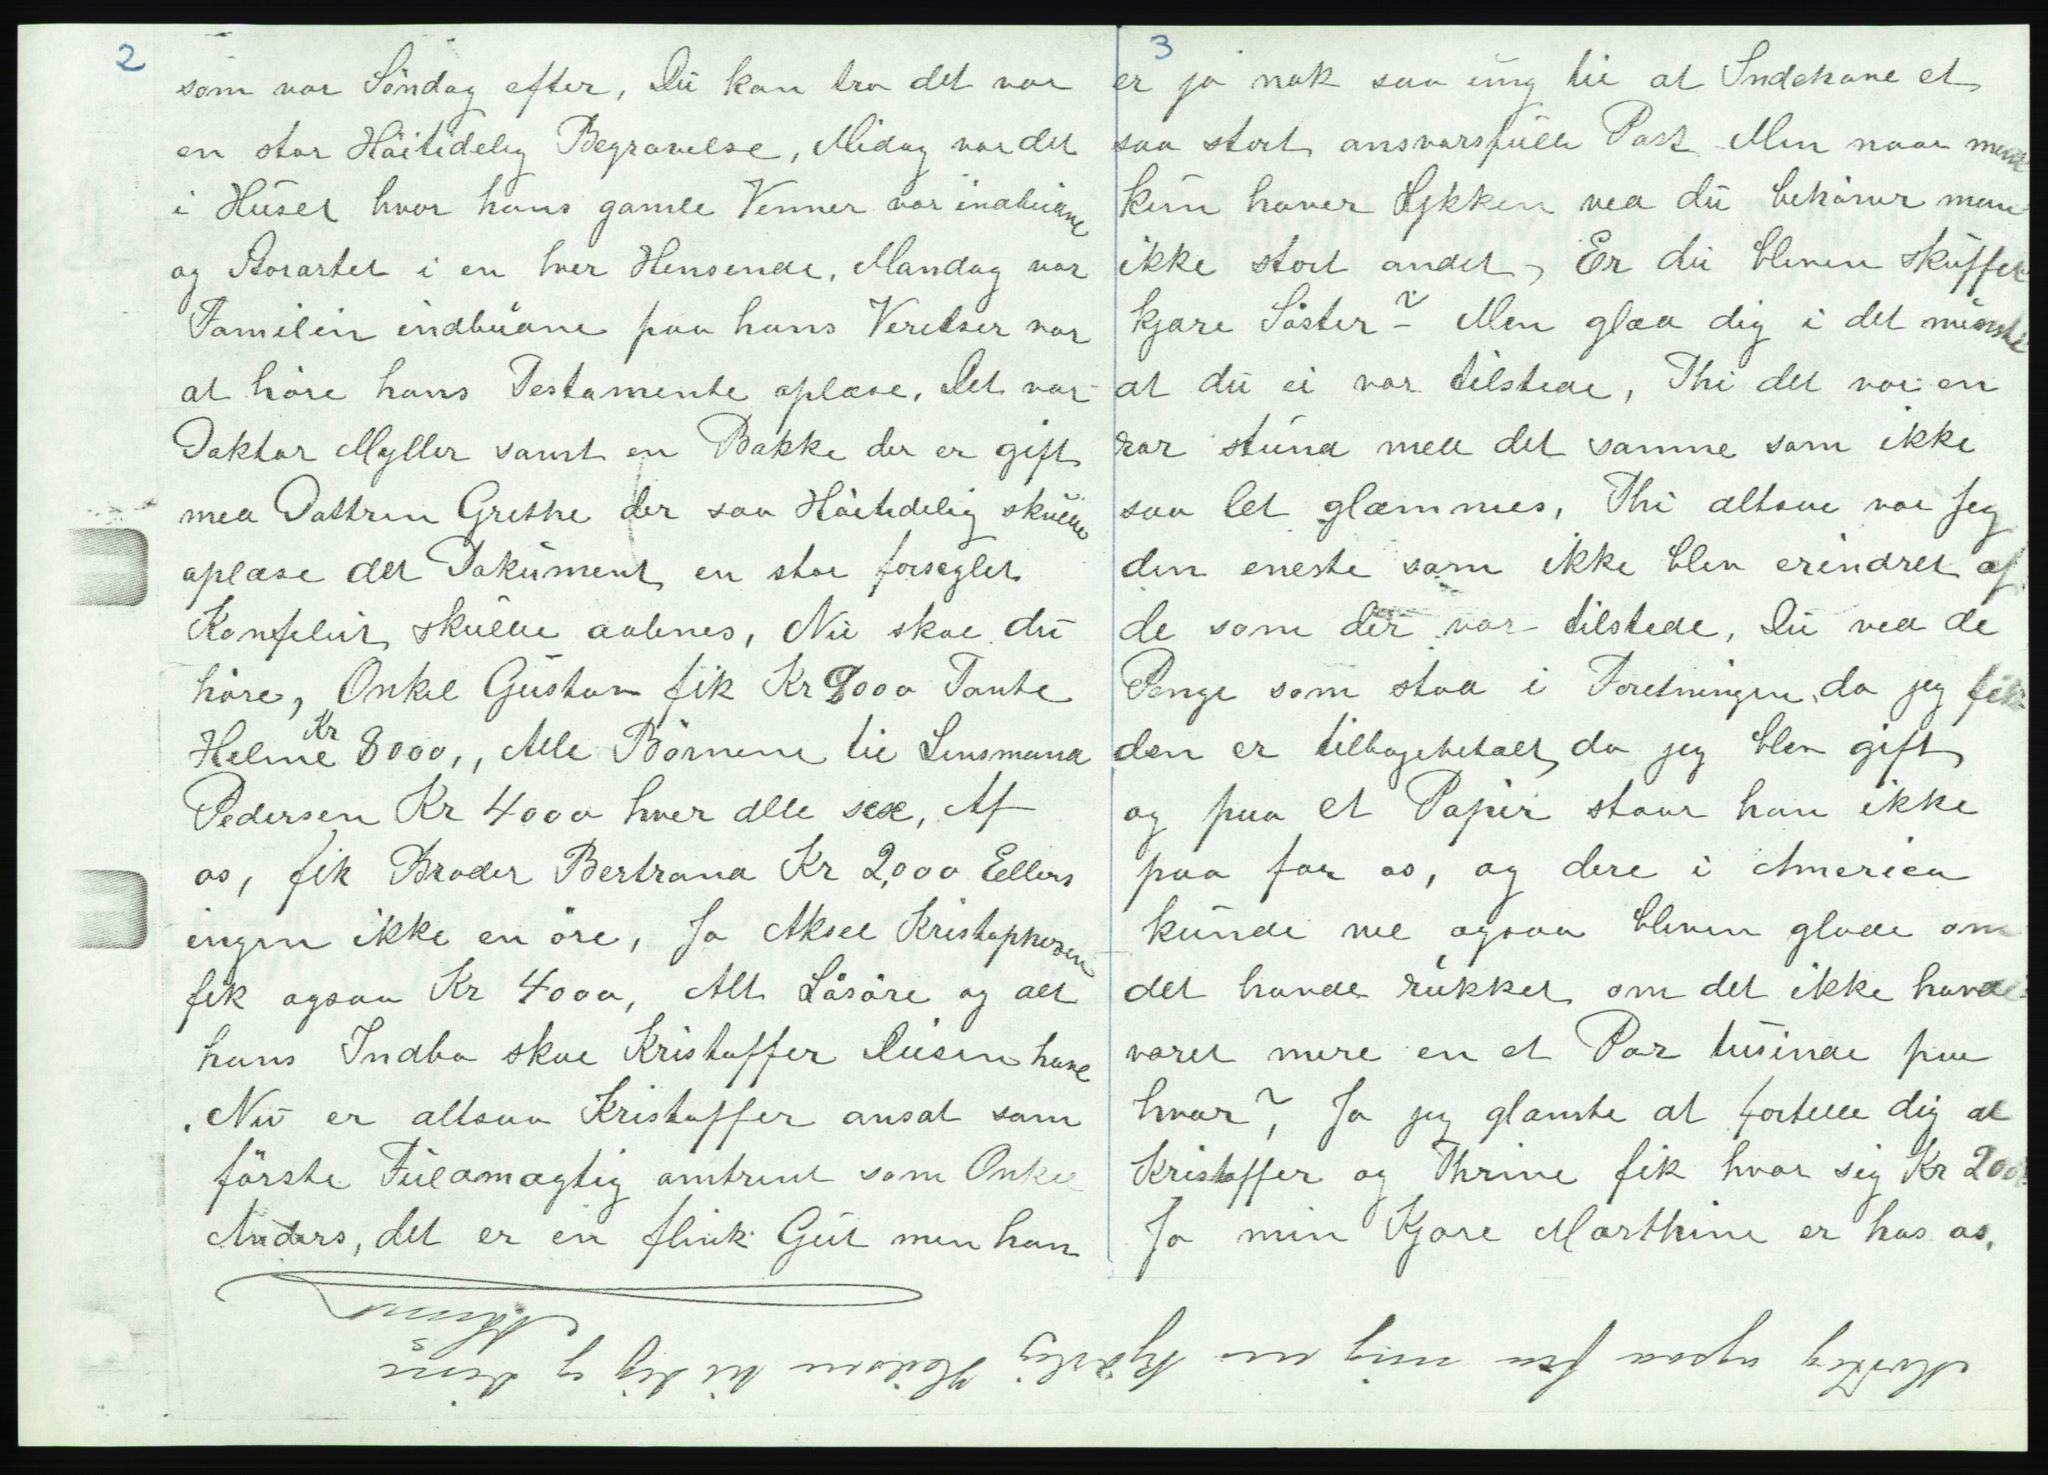 2
som var Söndag efter, Du kan tro det var
en stor Höitidelig Begravelse, Midag var det
i Huset hvor hans gamle Venner var indbudne
og Storartet i en hver Hensende, Mandag var
Familien indbudne paa hans Veretser var
at höre hans Testamente oplæse, Det var
Doktor Myller samt en Bakke der er gift
med Dattren Grethe der saa Höitidelig skulde
oplæse det Dokument en stor forseglet
Konfelut skulde aabnes, Nu skal du
höre, Onkel Gustav fik Kr 9000 Tante
Helme Kr 8000,, Alle Börnene til Lensmand
Pedersen Kr 4000 hver alle sex, Af
os, fik Broder Bertrand Kr 2,000 Ellers
ingen ikke en öre, Ja Aksel Kristophersen
fik ogsaa Kr 4000, Alt Lösöre og alt
hans Indbo skal Kristoffer Dusen have
. Nu er altsaa Kristoffer ansat som
förste Fuldmægtig omtrent som Onkel
Anders, det er en flink Gut men han
3
er jo nok saa ung til at Indehave et
saa stort ansvarsfulle Post Men naar man
kun haver Lykken ved du behöver man
ikke stort andet, Er du bleven skuffet
kjære Söster? – Men glæd dig i det minste
at du ei var tilstede, Thi det var en
rar stund med det samme som ikke
saa let glæmmes, Thi altsaa var Jeg
den eneste som ikke blev erindret af
de som der var tilstede, Du ved de
Penge som staa i Foretningen da jeg fik
den er tilbagebetalt da jeg blev gift
og paa et Papir staar han ikke
paa for os, og dere i America
kunde vel ogsaa bleven glade om
det havde rukket om det ikke havde
været mere en et Par tusinde paa
hvar?, Ja jeg glæmte at fortelle dig at
Kristoffer og Thrine fik hvar sig Kr 2000
Ja min Kjære Marthine er hos os.
Modtag ogsaa fra mig en kjærlig Hilsen til dig og dine